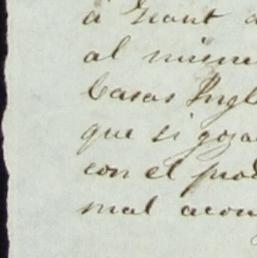 á Grant
al mism
Casas Ingl
que si goza
con el prod
mal acom